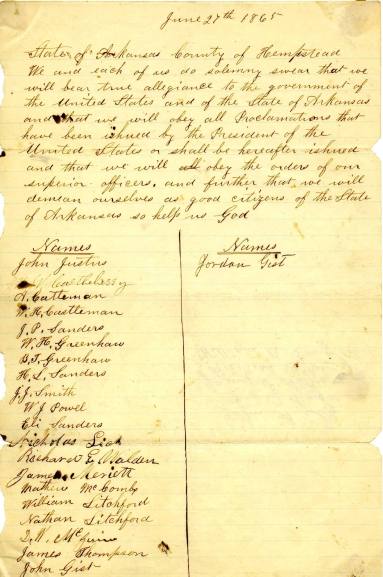 June 27th 1865
State of Arkansas County of Hempstead
We and each of us do solemny swear that we
will bear true allegiance to the government of
the United States and of the State of Arkansas
and that we will obey all Proclamations that
have been issued by the President of the
United States or shall be hereafter ishued
and that we will all obey the orders of our
superior officers, and further that we will
demean ourselves as good citizens of the State
of Arkansas so help us God
Names
John Justus
A. Castleman
W. H. Castleman
J. P. Sanders
W. H. Greenhaw
B. F. Greenhaw
H. L. Sanders
J. J. Smith
W J Powel
Eli Sanders
Nicholas
Richard E Walden
James
Mathew McCombs
William Litchford
Nathan Litchford
James Thompson
John Gist
Names
Jordan Gist